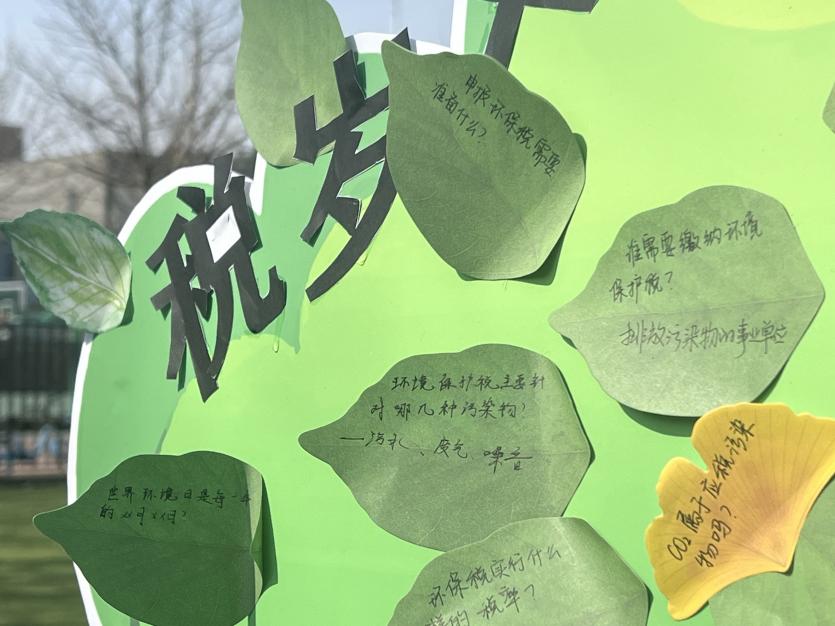 税岁
申报环保税需要
准备什么?
谁需要缴纳环境
保护税?
排放污染物的事业单位
环境保护税主要针
对哪几种污染物?
废气、噪音
世界环境日是每一年
的xx月xx何?
CO₂属于应税污染
物吗?
环保税实行什么
样的税率?